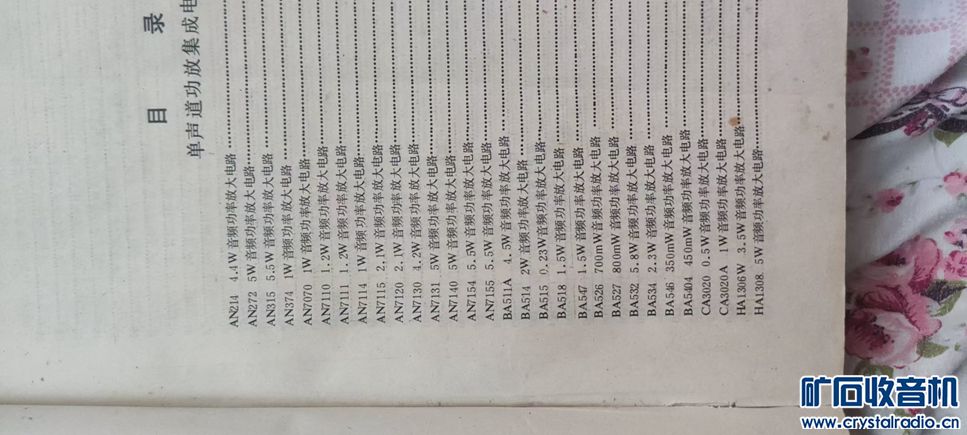 目 录
单声道功放集成电
AN214 4.4W音频功率放大电路
AN272 5W音频功率放大电路
AN315 5.5W音频功率放大电路
AN374 1W音频功率放大电路
AN7070 1W音频功率放大电路
AN7110 1.2W音频功率放大电路
AN7111 1.2W音频功率放大电路
AN7114 1W音频功率放大电路
AN7115 2.1W音频功率放大电路
AN7120 2.1W音频功率放大电路
AN7130 4.2W音频功率放大电路
AN7131 5W音频功率放大电路
AN7140 5W音频功率放大电路
AN7154 5.5W音频功率放大电路
AN7155 5.5W音频功率放大电路
BA511A 4.5W音频功率放大电路
BA514 2W音频功率放大电路
BA515 0.23W音频功率放大电路
BA518 1.5W音频功率放大电路
BA547 1.5W音频功率放大电路
BA526 700mW音频功率放大电路
BA527 800mW音频功率放大电路
BA532 5.8W音频功率放大电路
BA534 2.3W音频功率放大电路
BA546 350mW音频功率放大电路
BA540A 450mW音频功率放大电路
CA3020 0.5W音频功率放大电路
CA3020A 1W音频功率放大电路
HA1306W 3.5W音频功率放大电路
HA1308 5W音频功率放大电路
矿石收音机
www.crystalradio.cn